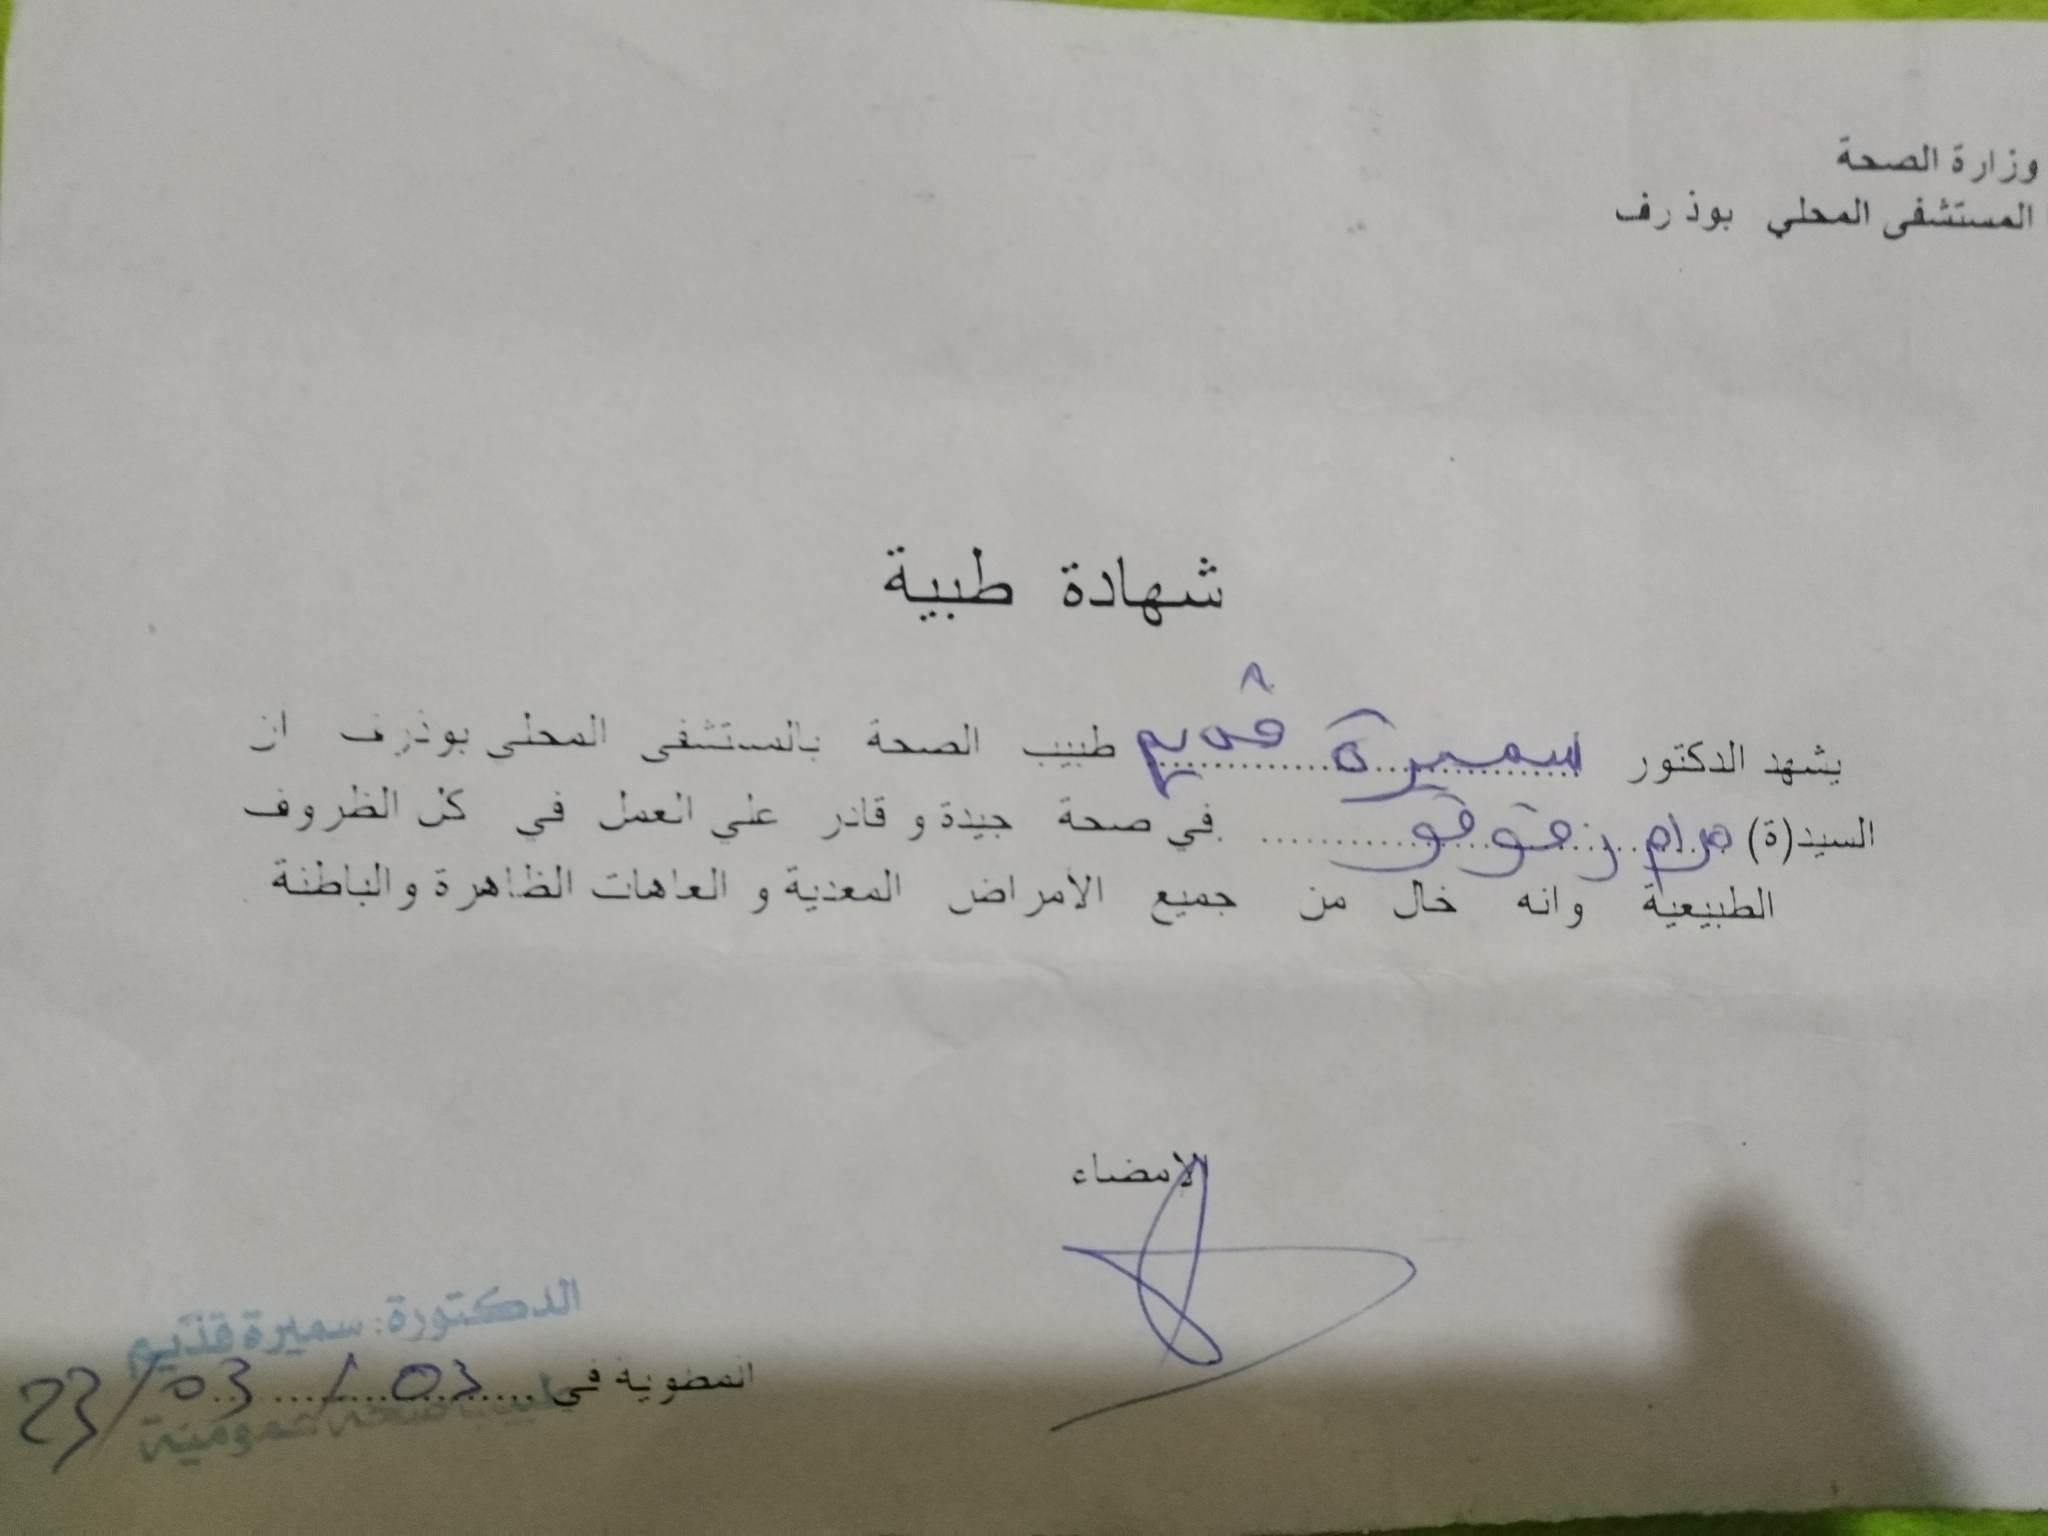 وزارة الصحة
المستشفى المحلي بوذرف
شهادة طبية
يشهد الدكتور سميرة قديم طبيب الصحة بالمستشفى المحلي بوذرف ان
السيد(ة) مرام زقوقو في صحة جيدة و قادر علي العمل في كل الظروف
الطبيعية وانه خال من جميع الامراض المعدية و العاهات الظاهرة والباطنة
الامضاء
الدكتورة: سميرة قذيم
المطوية في 03 / 03 / 23
طبيب صحة عمومية